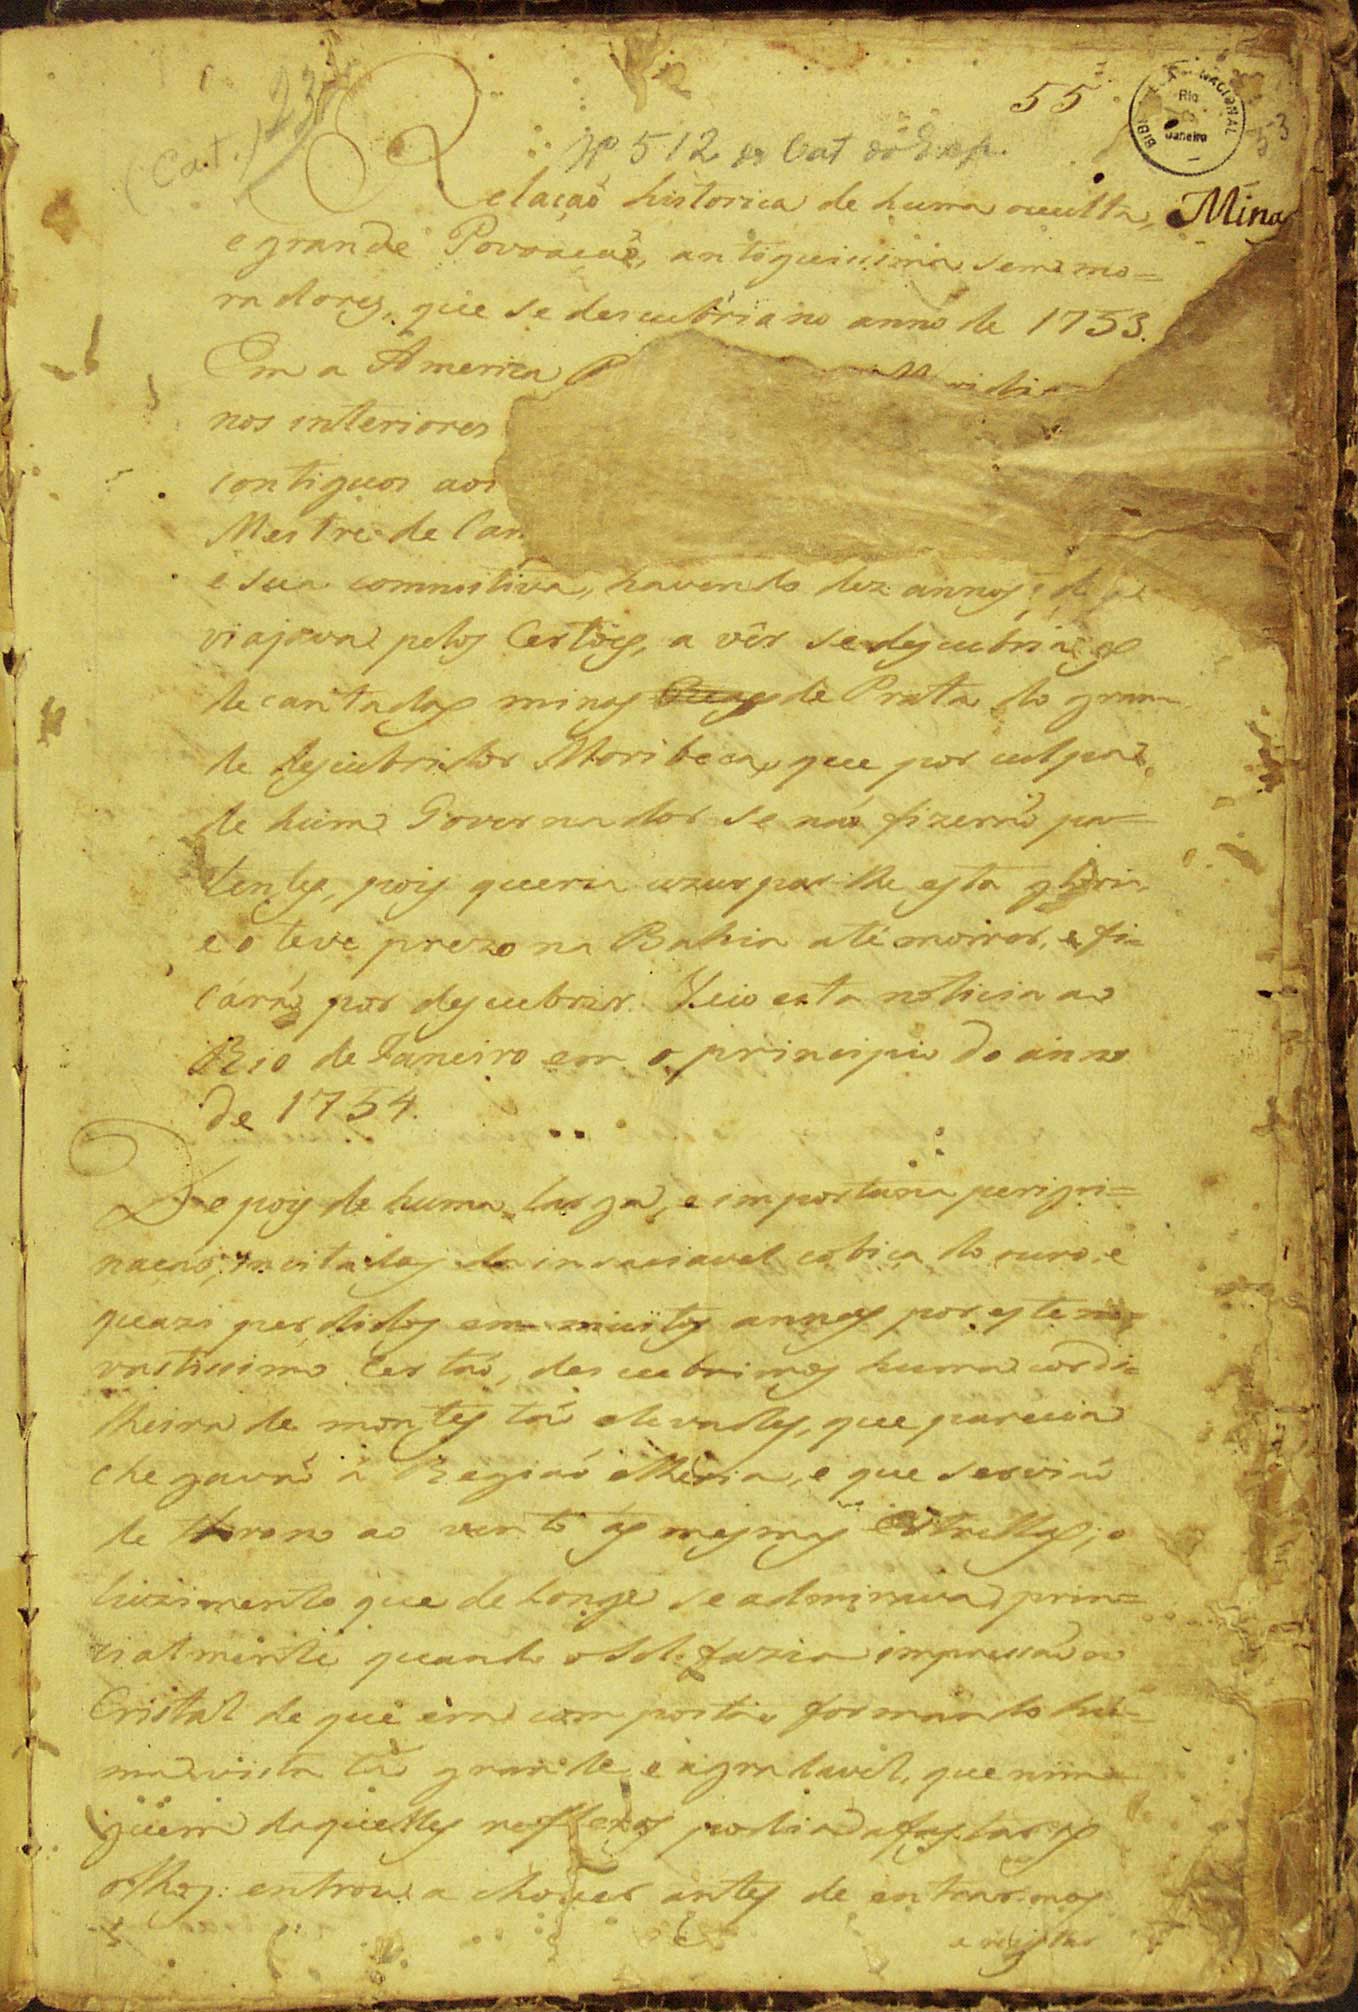 (Cat.) 23
55
BIBLIOTHECA NACIONAL
Rio
Janeiro
53
Nº 512 do Cat da Exp.
Relaçaõ historica de huma occulta, Minas
e grande Povoaçaõ, antiguissima sem mo=
radores, que se descubriu no anno de 1753.
Em a America
nos interiores
contiguos aos
Mestre de Can
e sua commitiva, havendo dez annos, 
viajava pelos Certoẽs, a vêr se descubria os
decantadas minas de Prata do gran
de descubridor Moribeca, que por culpa
de hum Governador se naõ fizeraõ pa=
tentes, pois queria uzurparlhe esta gloria
e o teve prezo na Bahia até morrer, e fi=
caraõ por descubrir. Veio esta noticia ao
Rio de Janeiro em o principio do anno
de 1754.
Depois de huma larga, e importuna perigri=
naçaõ, incitados da insaciavel cobiça do ouro, e
quazi perdidos em muitos annos por este
vastissimo Certaõ, descubrimos huma cordi=
lheira de montes taõ elevados, que parecia
chegavaõ á Regiaõ etheria, e que serviaõ
de throno ao vento ás mesmas Estrellas; o
luzimento que de longe se admirava, prin=
cialmente quando o Sol fazia impressaõ ao
Cristal de que era composta, formando hu=
ma vista taõ grande e agradavel, que nin=
guem daquelles reflexos podia afastar os
olhos: entrou a chover antes de entrarmos
a registar